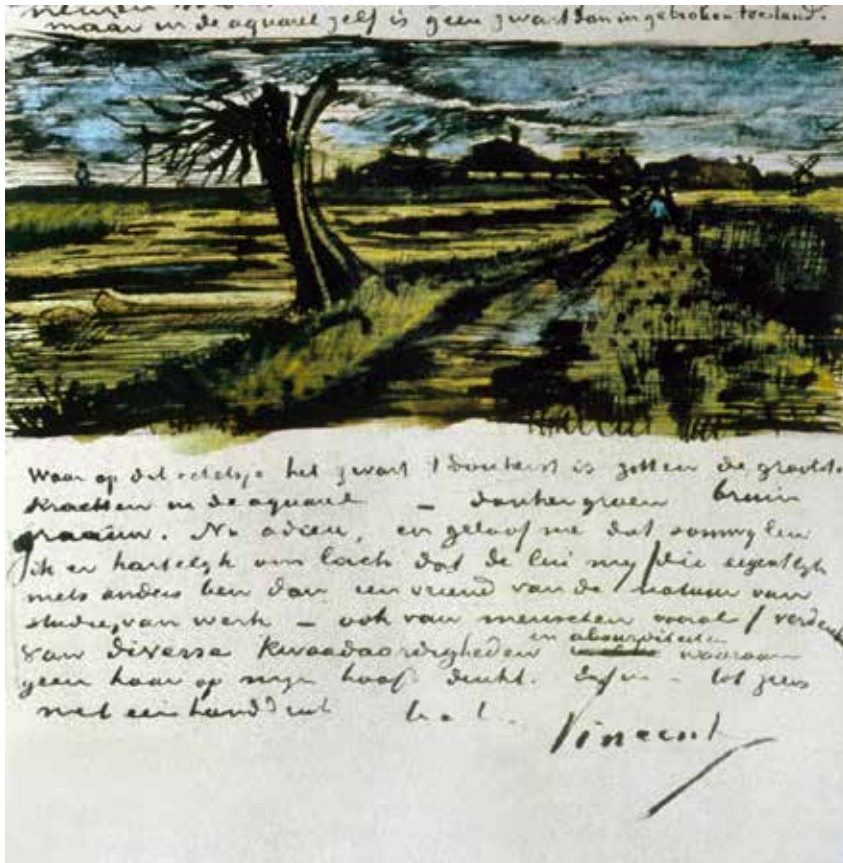 maar in de aquarel zelf is geen zwart dan in gebroken toestand.
Waar op dit schetsje het zwart 't donkerst is zitten de grootste
krachten in de aquarel – donkergroen bruin
graauw. Nu adieu, en geloof me dat somwylen
ik er hartelyk om lach dat de lui my /die eigentlyk
niets anders ben dan een vriend van de natuur van
studie, van werk – ook van menschen vooral/ verdenken
van diverse kwaadaardigheden en absurditeiten waaraan
geen haar op myn hoofd denkt. Enfin – tot ziens
met een handdruk t. à t.
Vincent